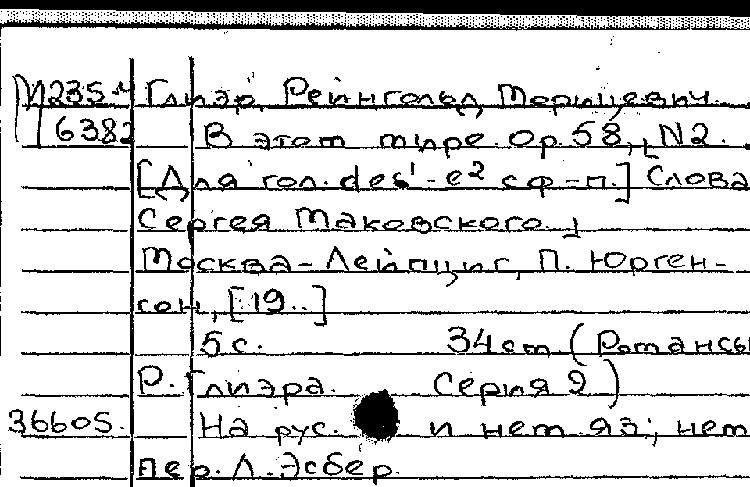 М235.4 Глиэр, Рейнгольд Морицевич
6382 В этом мире. Op. 58, N2.
[Для гол. des¹-e² с ф-п.] Слова
Сергея Маковского.
Москва-Лейпциг, П. Юрген-
сон, [19..]
5 с. 34 cm (Романсы
Р. Глиэра. Серия 2)
36605. На рус. и нем яз; нем
пер. Л. Эсбер.